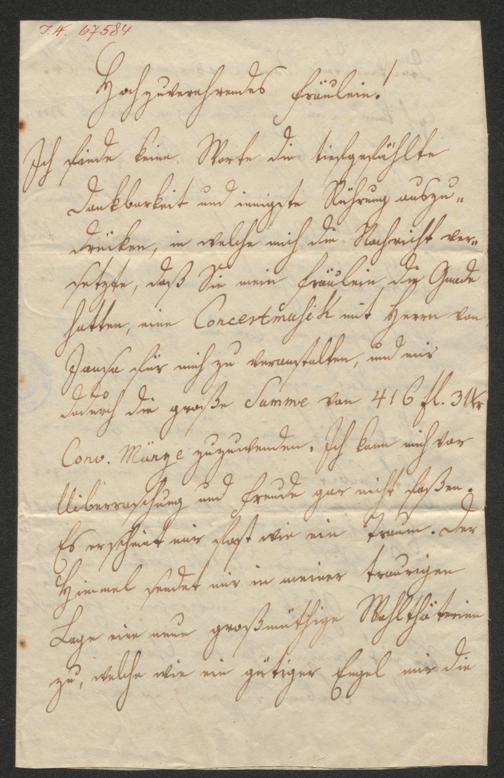 I.N. 67584
Hochzuverehrendes Fräulein!
Ich finde keine Worte die tiefgefühlte
Dankbarkeit und innigste Rührung auszu-
drücken, in welche mich die Nachricht ver-
setzte, daß Sie mein Fräulein, die Gnade
hatten, eine Concertmusik mit Herrn von
Jansa für mich zu veranstalten, und mir
dadurch die große Summe von 416 fl. 31 Kr
Conv. Münze zuzuwenden. Ich kann mich vor
Uiberraschung und Freude gar nicht faßen.
Es erscheint mir fast wie ein Traum. Der
Himmel sendet mir in meiner traurigen
Lage eine neue großmüthige Wohlthäterinn
zu, welche wie ein gütiger Engel mir die